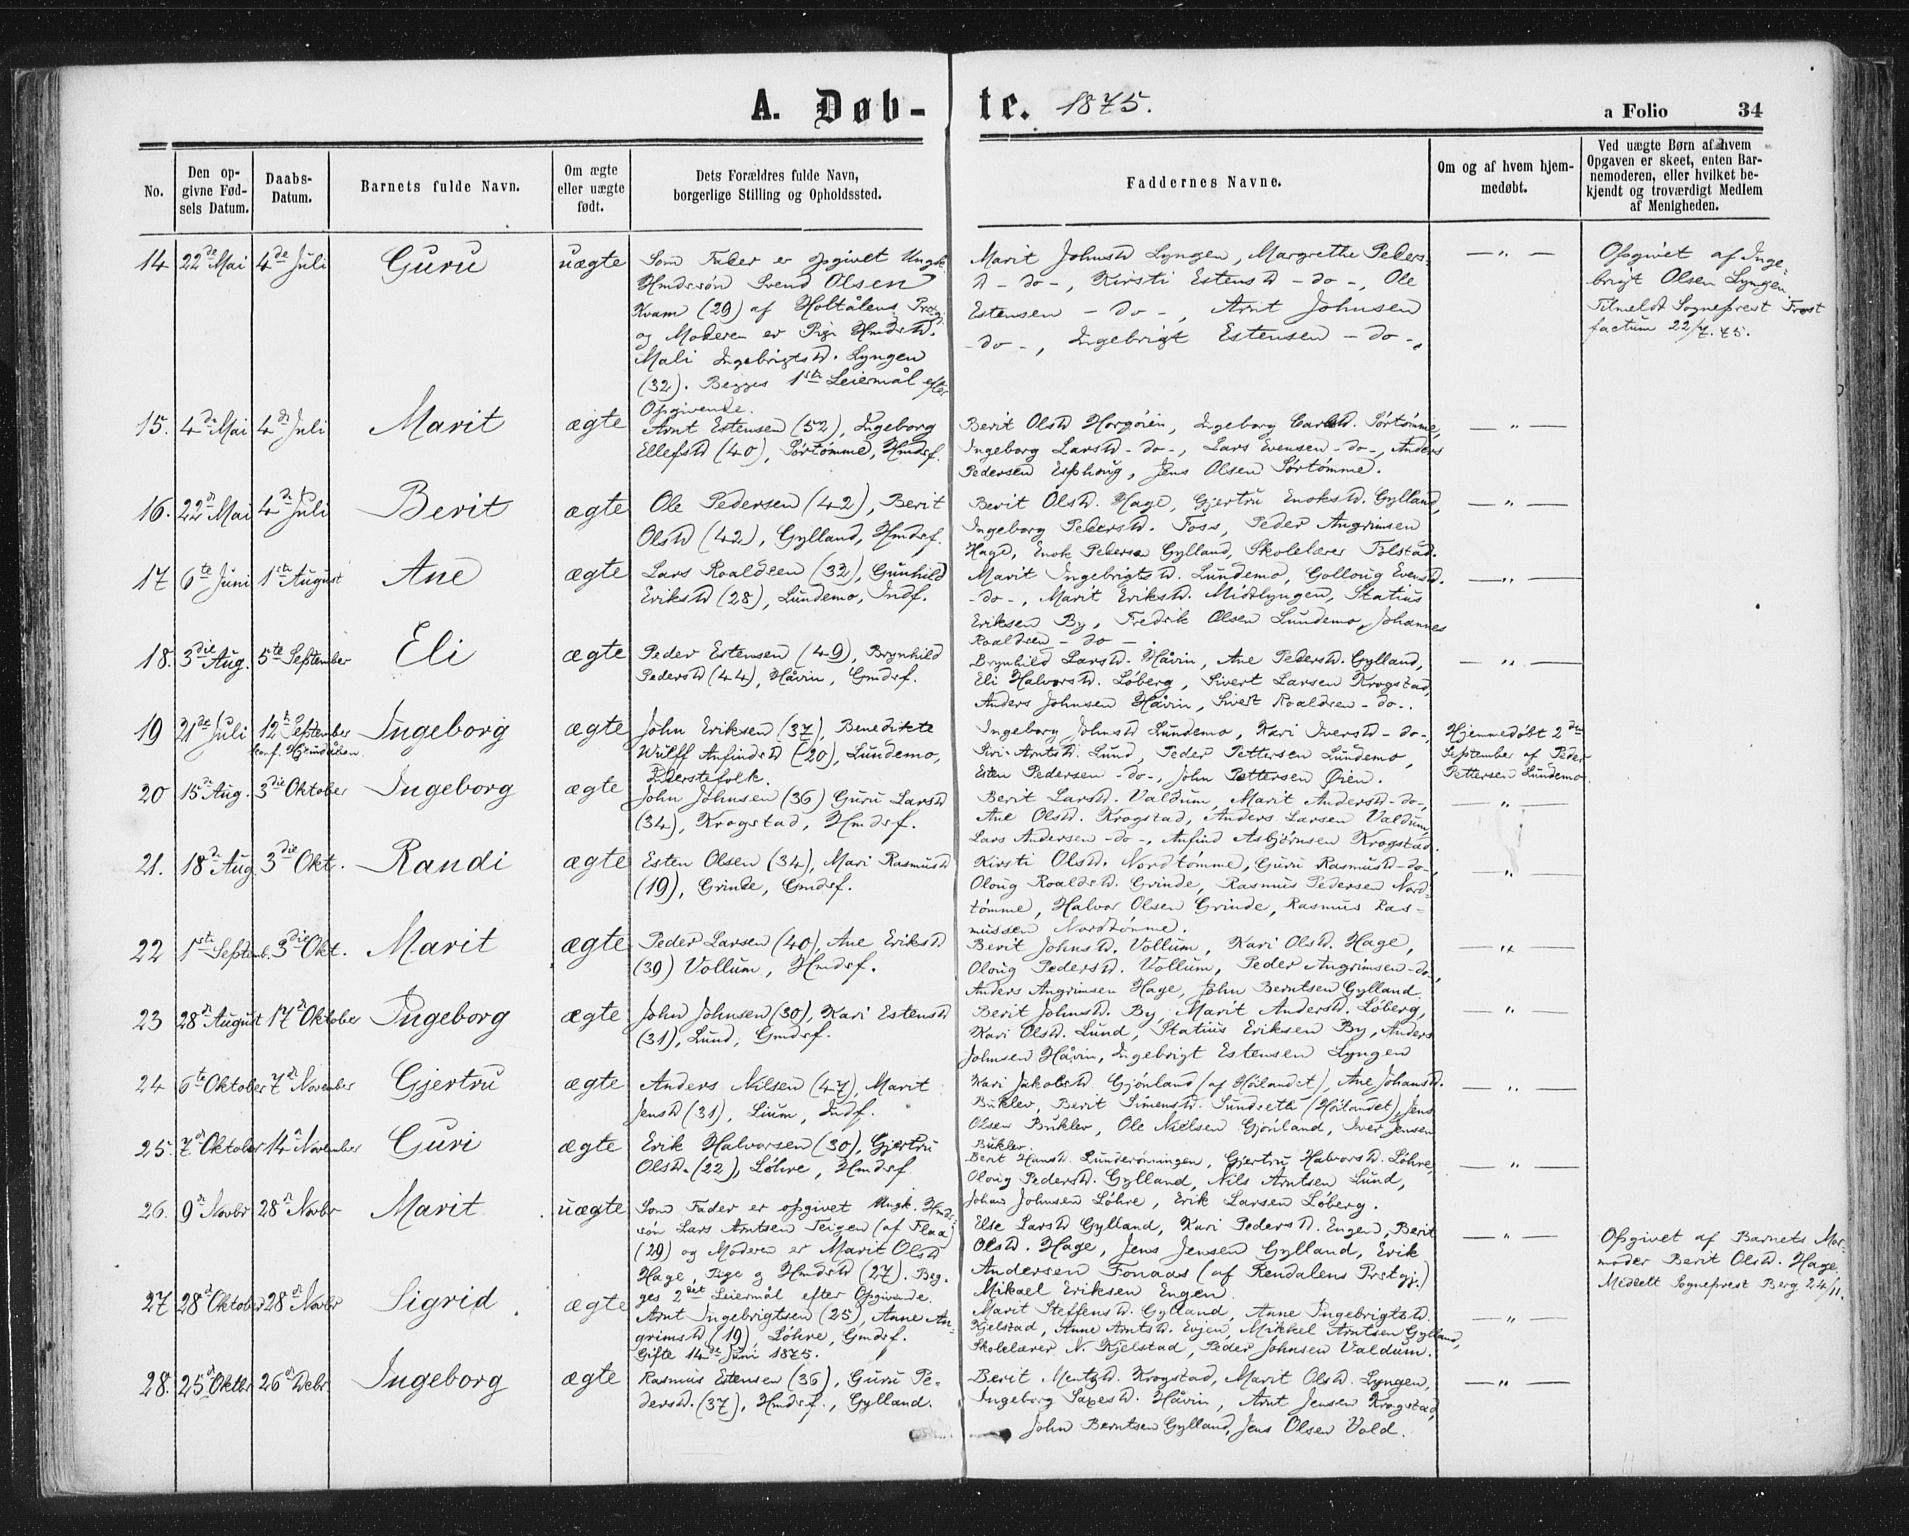 A. Døb- te. 1875.
a Folio 34
No.
Den op-
givne Fød-
sels Datum.
Daabs-
Datum.
Barnets fulde Navn.
Om ægte
eller uægte
født.
Dets Forældres fulde Navn,
borgerlige Stilling og Opholdssted.
Faddernes Navne.
Om og af hvem hjem-
medøbt.
Ved uægte Børn af hvem
Opgaven er skeet, enten Bar-
nemoderen, eller hvilket be-
kjendt og troværdigt Medlem
af Menigheden.
14 22de Mai 4de Juli Guru uægte
Som Fader er opgivet Ungk.
Hmdssøn Svend Olsen
Kvam (29) af Holtålens Prstgj.
og Moderen er Pige Hmdsd.
Mali Ingebrigtsd. Lyngen
(32). Begges 1ste Leiermål efter
Opgivende.
Marit Johnsd Lyngen, Margrethe Peders-
d -do-, Kirsti Estensd -do-, Ole
Estensen -do-, Arnt Johnsen
-do-, Ingebrigt Estensen -do-.
— " —
Opgivet af Inge-
brigt Olsen Lyngen
Tilmeldt Sogneprest Frost
factum 22/7. 75.
15. 4de Mai 4de Juli Marit ægte
Arnt Estensen (52), Ingeborg
Ellefsd (40), Sørtømme, Hmdsf.
Berit Olsd Horgøien, Ingeborg Carlsd. Sørtømme,
Ingeborg Larsd -do-, Lars Evensen -do-, Anders
Pedersen Esphoug, Jens Olsen Sørtømme.
— " —
16. 22de Mai 4de Juli Berit ægte
Ole Pedersen (42), Berit
Olsd (42), Gylland, Hmdsf.
Berit Olsd. Hage, Gjertru Enoksd. Gylland,
Ingeborg Pedersd. Foss, Peder Angrimsen
Hage, Enok Pedersen Gylland, Skolelærer Tolstad.
— " —
17 6te Juni 1ste August Ane ægte
Lars Roaldsen (32), Gunhild
Eriksd (28), Lundemo, Indf.
Marit Ingebrigtsd. Lundemo, Golloug Evensd.
-do-, Marit Eriksd. Midtlyngen, Statius
Eriksen By, Fredrik Olsen Lundemo, Johannes
Roaldsen -do-.
— " —
18. 3die Aug. 5te September Eli ægte
Peder Estensen (49), Brynhild
Pedersd (44), Håvin, Gmdsf.
Brynhild Larsd. Håvin, Ane Pedersd. Gylland,
Eli Halvorsd. Løberg, Sivert Larsen Krogstad,
Anders Johnsen Håvin, Sivert Roaldsen -do-.
— " —
19 21de Juli 12te September Ingeborg ægte
konf. Hjemdåben
John Eriksen (37), Benedikte
Wulff Anfindsd (20), Lundemo,
Inderstefolk.
Ingeborg Johnsd Lundemo, Kari Iversd -do-,
Siri Arntsd. Lund, Peder Pettersen Lundemo,
Esten Pedersen -do-, John Pettersen Øien.
Hjemmedøbt 2den
September af Peder
Pettersen Lundemo.
20 15de Aug. 3die Oktober Ingeborg ægte
John Johnsen (36) Guru Larsd
(34), Krogstad, Hmdsf.
Berit Larsd. Valdum, Marit Andersd -do-,
Ane Olsd. Krogstad, Anders Larsen Valdum,
Lars Andersen -do-, Anfind Asbjørnsen Krogstad.
— " —
21. 18de Aug. 3die Okt. Randi ægte
Esten Olsen (34), Mari Rasmusd
(19), Grinde, Gmdsf.
Kirsti Olsd. Nordtømme, Guru Rasmusd -do-,
Oloug Roaldsd. Grinde, Rasmus Pedersen Nord-
tømme, Halvor Olsen Grinde, Rasmus Ras-
mussen Nordtømme.
— " —
22 1ste Septemb. 3die Okt. Marit ægte
Peder Larsen (40), Ane Eriksd
(39) Vollum, Hmdsf.
Berit Johnsd. Vollum, Kari Olsd. Hage,
Oloug Pedersd. Vollum, Peder Angrimsen -do-,
Anders Angrimsen Hage, John Berntsen Gylland.
— " —
23 28de August 17de Oktober Ingeborg ægte
John Johnsen (30), Kari Estensd
(31), Lund, Gmdsf.
Berit Johnsd. By, Marit Andersd. Løberg,
Kari Olsd. Lund, Statius Eriksen By, Anders
Johnsen Håvin, Ingebrigt Estensen Lyngen
— " —
24 6te Oktober 7de November Gjertru ægte
Anders Nilsen (47), Marit
Jensd (31), Lium, Indf.
Kari Jakobsd. Gjønland (af Høilandet), Ane Johansd.
Buklev, Berit Simensd. Sundseth (Høilandet), Jens
Olsen Buklev, Ole Nielsen Gjønland, Iver Jensen
Buklev.
— " —
25. 7de Oktober 14de November Guri ægte
Erik Halvorsen (30), Gjertru
Olsd. (22), Løhre, Hmdsf.
Berit Hansd. Lunderønningen, Gjertru Halvorsd. Løhre,
Oloug Pedersd. Gylland, Nils Arntsen Lund,
Johan Johnsen Løhre, Erik Larsen Løberg.
— " —
26. 9de Novbr 28de Novbr Marit uægte
Som Fader er opgivet Ungk. Hmds-
søn Lars Arntsen Teigen (af Flaa)
(29) og Moderen er Marit Olsd
Hage, Pige og Hmdsd (27). Beg-
ges 2det Leiermål efter Opgivende.
Else Larsd Gylland, Kari Pedersd. Engen, Berit
Olsd. Hage, Jens Jensen Gylland, Erik
Andersen Fonaas (af Rendalens Prstgj.)
Mikael Eriksen Engen.
— " —
Opgivet af Barnets Mor-
moder Berit Olsd. Hage
Meldt Sogneprest Berg 24/11.
27 28de Oktober 28de Novbr Sigrid ægte
Arnt Ingebrigtsen (25), Anne An-
grimsd (19), Løhre, Gmdsf.
Gifte 14de Juni 1875.
Marit Steffensd. Gylland, Anne Ingebrigtsd.
Kjelstad, Anne Arntsd. Evjen, Mikkel Arntsen Gylland,
Skolelærer N. Kjelstad, Peder Johnsen Valdum.
— " —
28. 25de Oktbr 26de Debr. Ingeborg ægte
Rasmus Estensen (36), Guru Pe-
dersd. (37), Hmdsf., Gylland.
Berit Mentzd. Krogstad, Marit Olsd. Lyngen,
Ingeborg Saxesd. Håvin, Arnt Jensen Krogstad,
John Berntsen Gylland, Jens Olsen Vold.
— " —